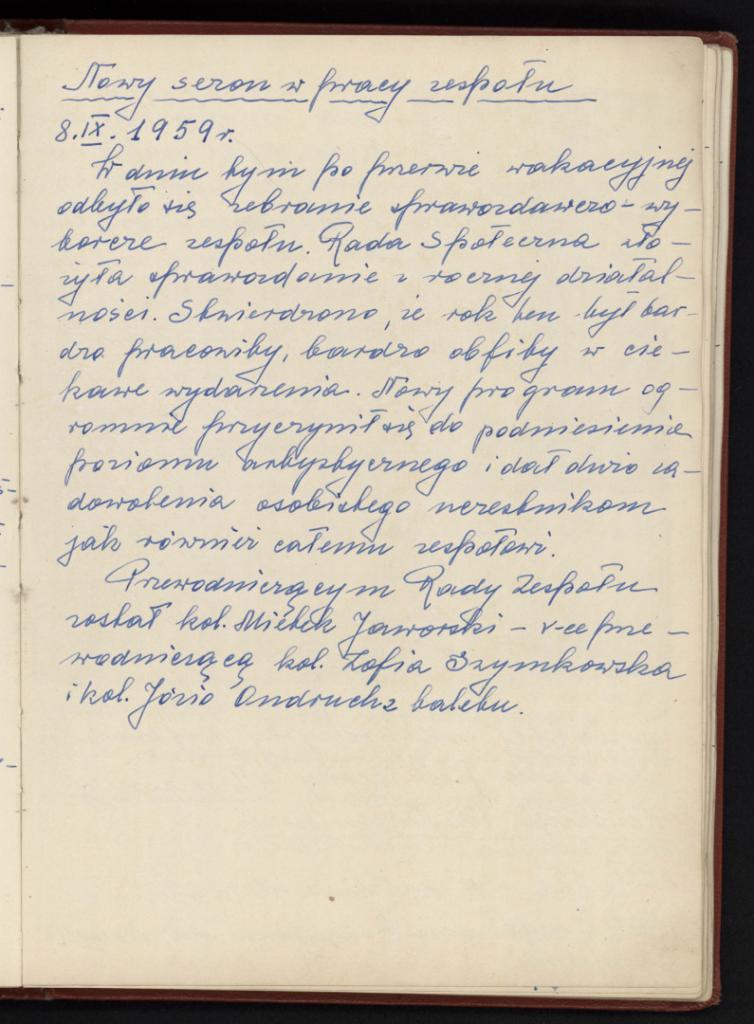 Nowy sezon w pracy zespołu
8.IX.1959 r.
W dniu tym po przerwie wakacyjnej
odbyło się zebranie sprawozdawczo-wy-
borcze zespołu. Rada Społeczna zło-
żyła sprawozdanie z rocznej działal-
ności. Stwierdzono, że rok ten był bar-
dzo pracowity, bardzo obfity w cie-
kawe wydarzenia. Nowy program og-
romnie przyczynił się do podniesienia
poziomu artystycznego i dał dużo za-
dowolenia osobistego uczestnikom
jak również całemu zespołowi.
Przewodniczącym Rady Zespołu
został kol. Mietek Jaworski - v-ce prze-
wodniczącą kol. Zofia Szymkowska
i kol. Józio Ondruch z baletu.